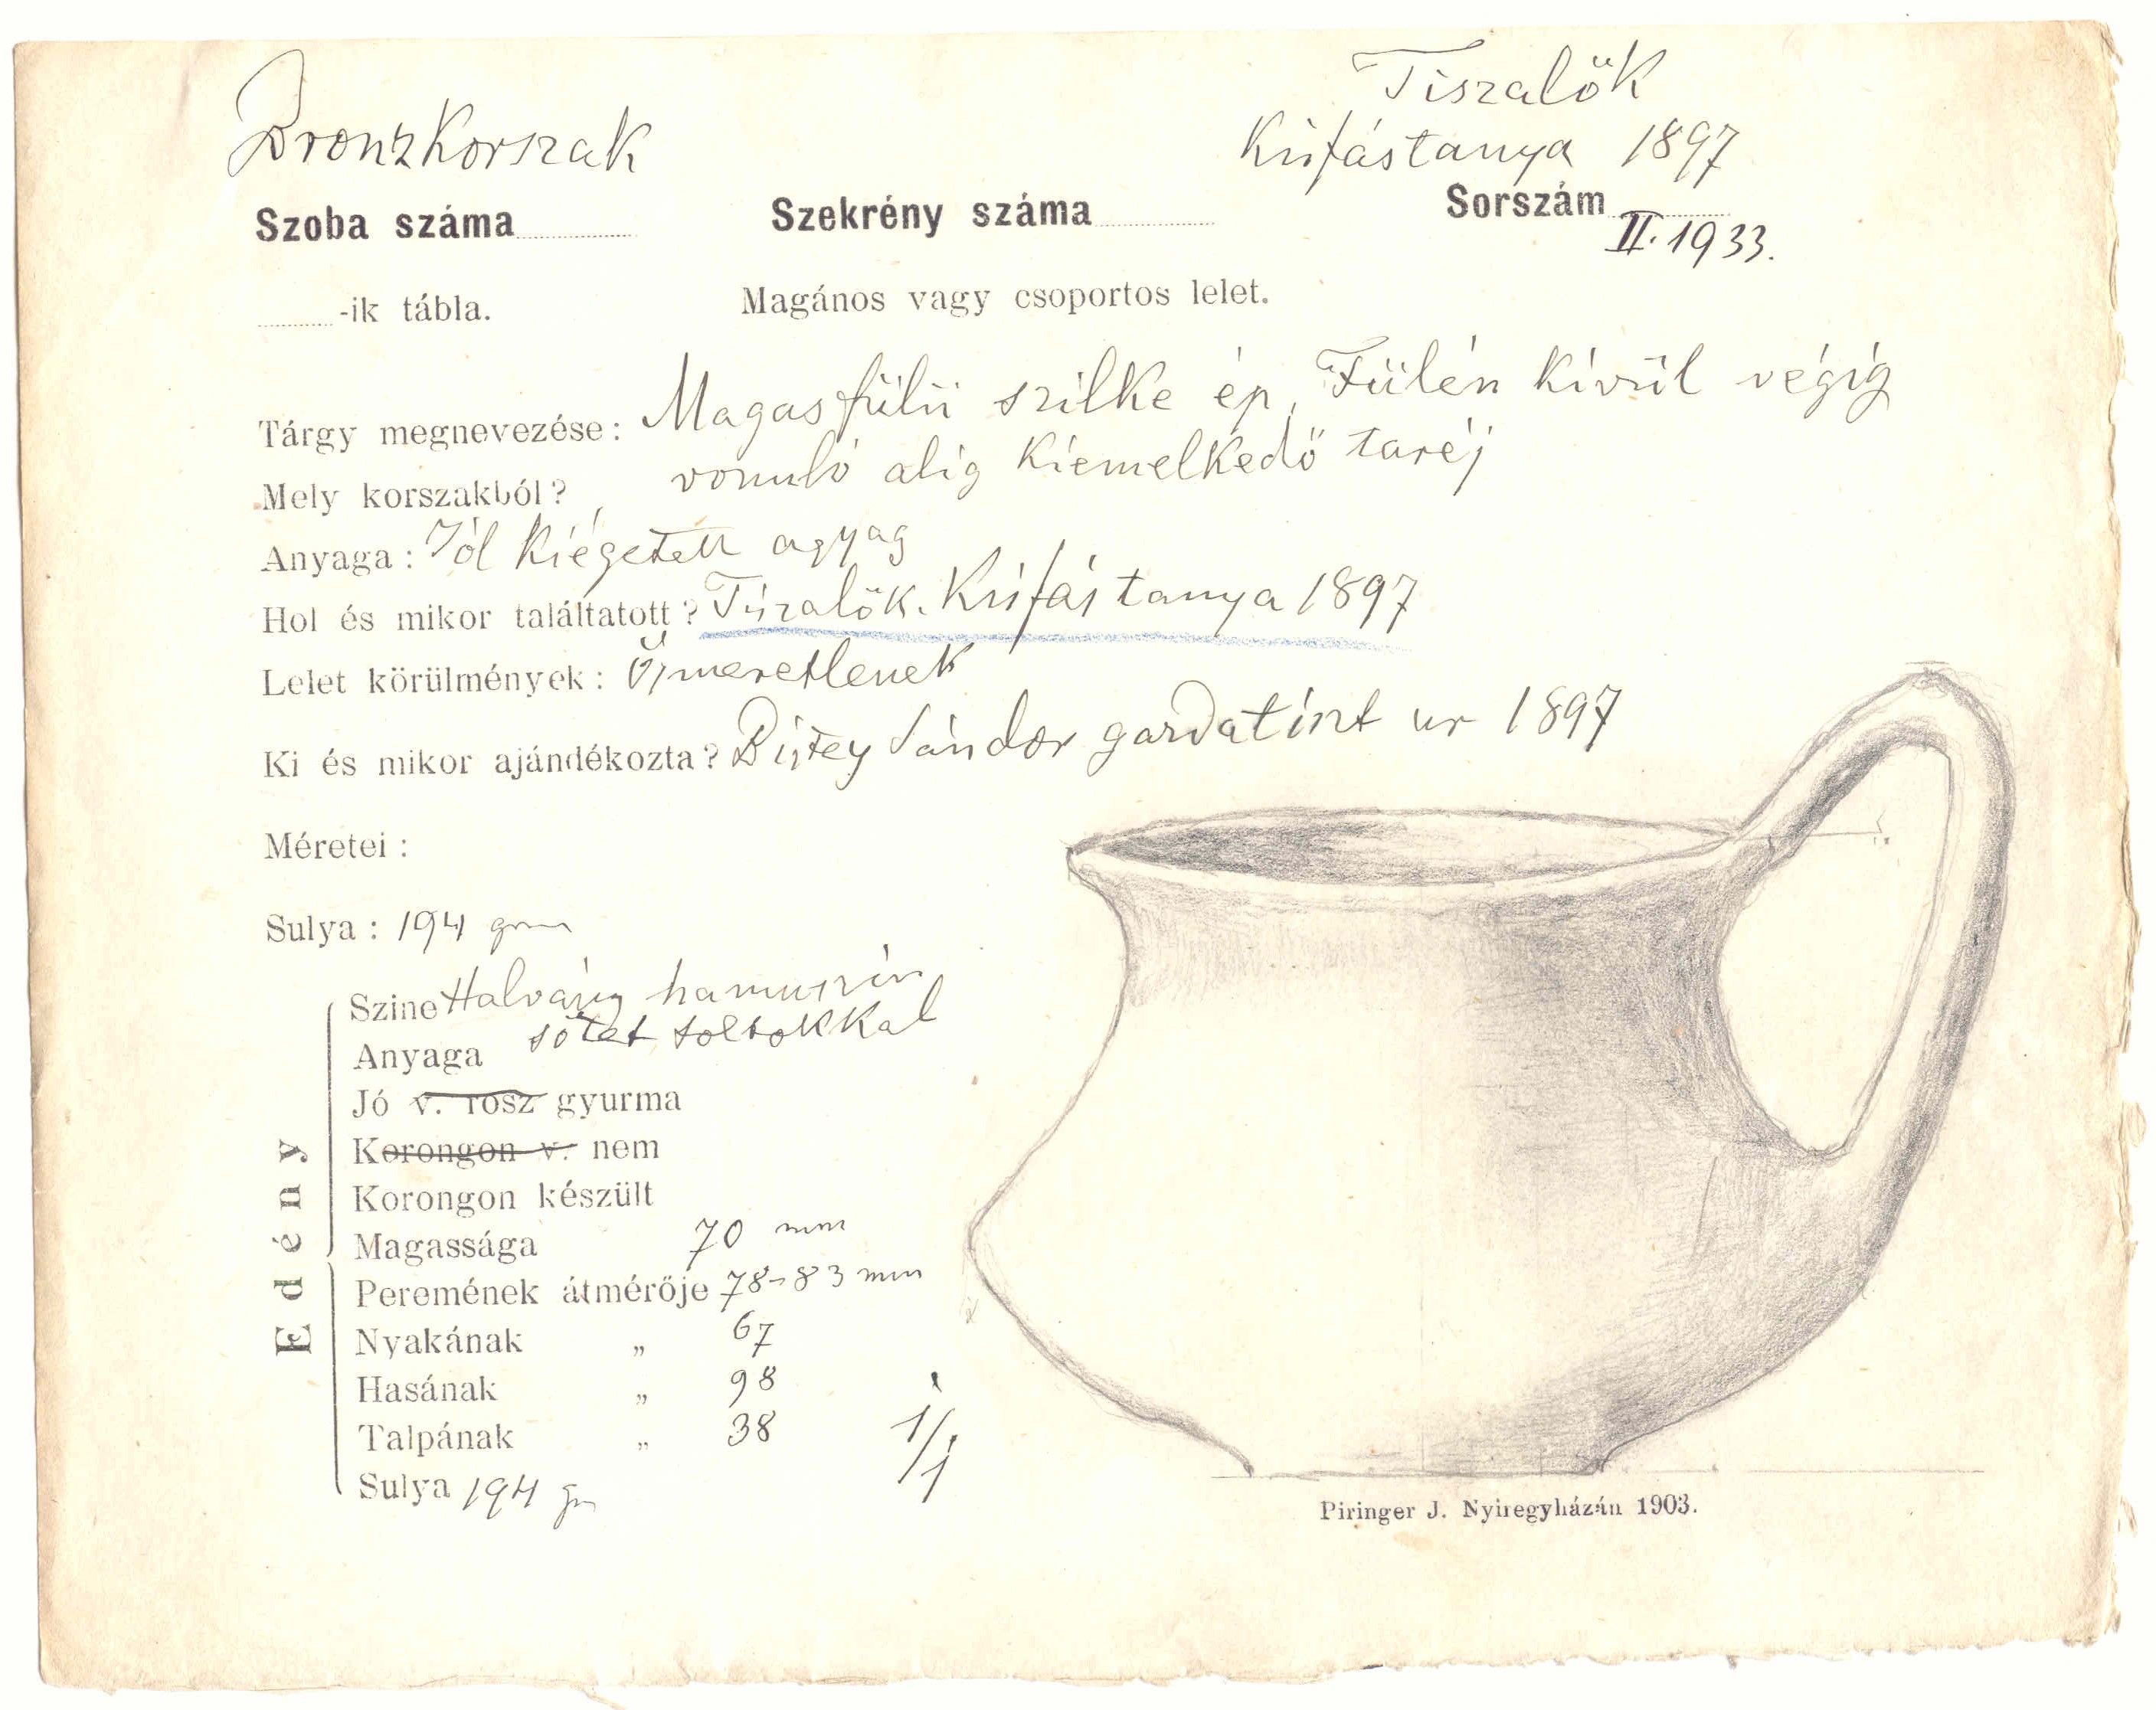 Bronzkorszak
Tiszalök
Kisfástanya 1897
Szoba száma
Szekrény száma
Sorszám
II. 1933.
-ik tábla.
Magános vagy csoportos lelet.
Tárgy megnevezése: Magasfülü szilke ép, Fülén kivül végig
vonuló alig kiemelkedő taréj
Mely korszakból?
Anyaga: Jól kiégetett agyag
Hol és mikor találtatott? Tiszalök. Kisfástanya 1897
Lelet körülmények: Ösmeretlenek
Ki és mikor ajándékozta? Sándor ur 1897
Méretei:
Sulya: 194 gm
Edény
Szine Halvány hamuszin
sötét foltokkal
Anyaga
Jó v. rosz gyurma
Korongon v. nem
Korongon készült
Magassága 70 mm
Peremének átmérője 78-83 mm
Nyakának „ 67
Hasának „ 98
Talpának „ 38
Sulya 194 gm
1/1
Piringer J. Nyiregyházán 1903.